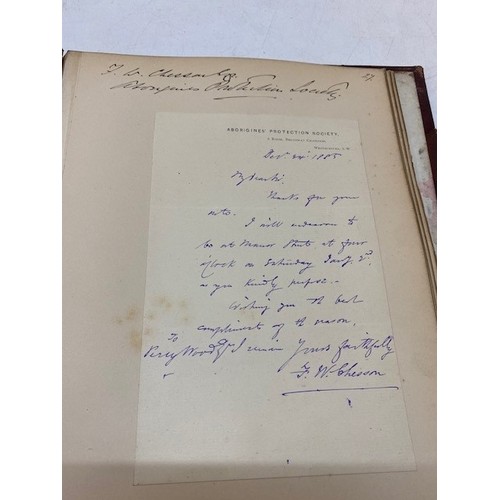 F. W. Chesson
Aborigines Protection Society
27
ABORIGINES' PROTECTION SOCIETY,
Broadway Chambers,
Westminster, S.W.
1885
My dear Sir,
Thanks for your
note.
I will endeavour to
be at Manor Street at four
o'clock on Saturday Jany. 2d.
as you kindly propose.
Wishing you the best
compliments of the season,
To
Percy Wood Esqr I remain Yours faithfully
F. W. Chesson